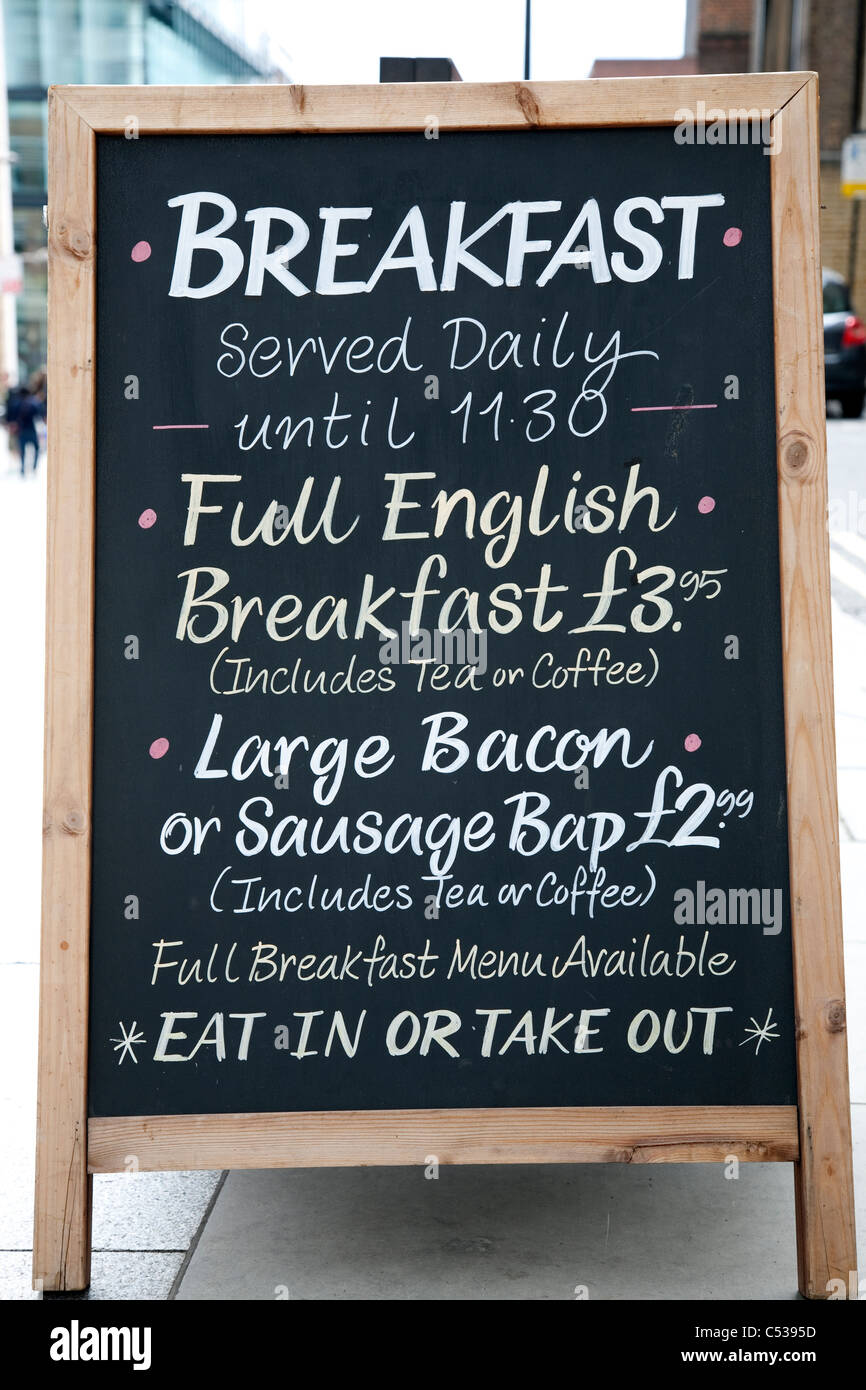 BREAKFAST
Served Daily
until 11.30
Full English
Breakfast £3.95
(Includes Tea or Coffee)
Large Bacon
or Sausage Bap £2.99
(Includes Tea or Coffee)
Full Breakfast Menu Available
* EAT IN OR TAKE OUT *
alamy
Image ID: C5395D
www.alamy.com